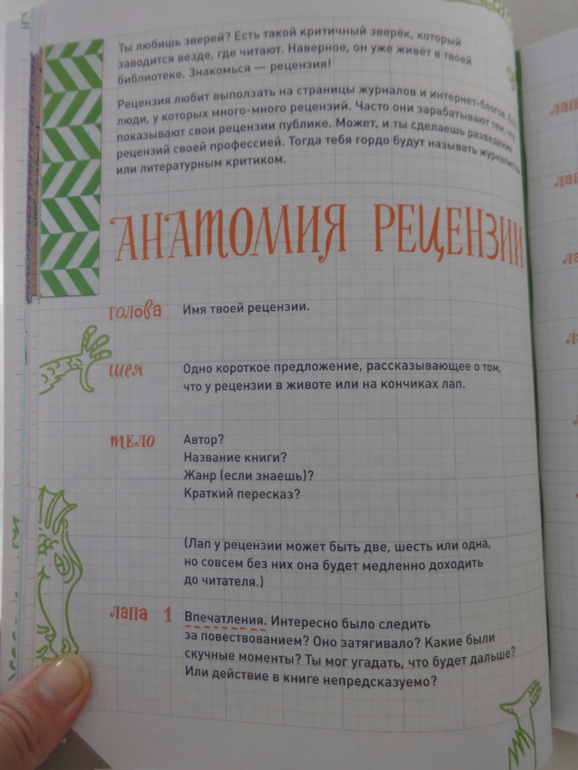 Ты любишь зверей? Есть такой критичный зверёк, который
заводится везде, где читают. Наверное, он уже живёт в твоей
библиотеке. Знакомься — рецензия!
Рецензия любит выползать на страницы журналов и интернет-блогов.
люди, у которых много-много рецензий. Часто они зарабатывают тем, что
показывают свои рецензии публике. Может, и ты сделаешь разведение
рецензий своей профессией. Тогда тебя гордо будут называть
или литературным критиком.
АНАТОМИЯ РЕЦЕНЗИИ
голова Имя твоей рецензии.
шея Одно короткое предложение, рассказывающее о том,
что у рецензии в животе или на кончиках лап.
тело Автор?
Название книги?
Жанр (если знаешь)?
Краткий пересказ?
(Лап у рецензии может быть две, шесть или одна,
но совсем без них она будет медленно доходить
до читателя.)
лапа 1 Впечатления. Интересно было следить
за повествованием? Оно затягивало? Какие были
скучные моменты? Ты мог угадать, что будет дальше?
Или действие в книге непредсказуемо?